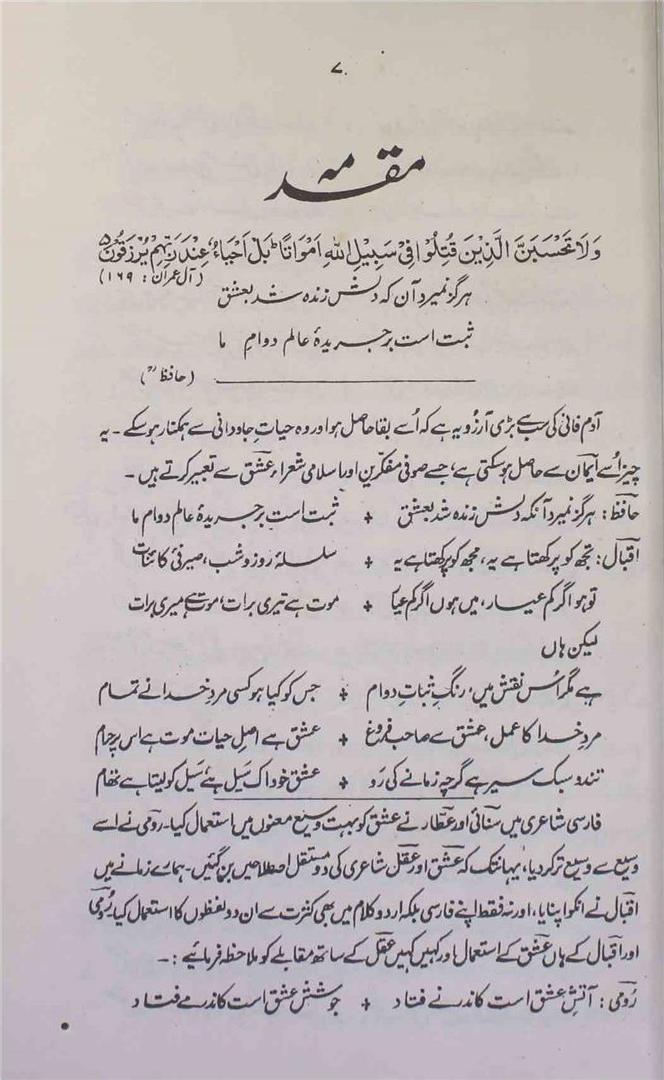 ۷
مقدمہ
وَلَا تَحْسَبَنَّ الَّذِيْنَ قُتِلُوْا فِيْ سَبِيْلِ اللهِ اَمْوَاتًا ؕ بَلْ اَحْيَاءٌ عِنْدَ رَبِّهِمْ يُرْزَقُوْنَ ۵
(آل عمران : ۱۶۹)
ہرگز نمیرد آن کہ دلش زندہ شد بعشق
ثبت است بر جریدۂ عالم دوامِ ما
(حافظؒ)
آدم فانی کی سب سے بڑی آرزُو یہ ہے کہ اُسے بقا حاصل ہو اور وہ حیاتِ جاودانی سے ہمکنار ہو سکے ۔ یہ
چیز اُسے ایمان سے حاصل ہو سکتی ہے، جسے صوفی مفکّرین اور اسلامی شعراء عشق سے تعبیر کرتے ہیں ۔
حافظ : ہرگز نمیرد آنکہ دلش زندہ شد بعشق + ثبت است بر جریدۂ عالم دوام ما
اقبال : تجھ کو پرکھتا ہے یہ، مجھ کو پرکھتا ہے یہ + سلسلۂ روز و شب، صیرفیٔ کائنات
تو ہو اگر کم عیار، میں ہوں اگر کم عیار + موت ہے تیری برات، موت ہے میری برات
لیکن ہاں
ہے مگر اس نقش میں، رنگِ ثباتِ دوام + جس کو کیا ہو کسی مردِ خدا نے تمام
مردِ خدا کا عمل، عشق سے صاحب فروغ + عشق ہے اصلِ حیات موت ہے اس پر حرام
تند و سبک سیر ہے گرچہ زمانے کی رَو + عشق خود اک سَیل ہے، سَیل کو لیتا ہے تھام
فارسی شاعری میں سنائی اور عطّار نے عشق کو بہت وسیع معنوں میں استعمال کیا۔ رومی نے اسے
وسیع سے وسیع تر کر دیا، یہانتک کہ عشق اور عقل شاعری کی دو مستقل اصطلاحیں بن گئیں۔ ہمارے زمانے میں
اقبال نے انکو اپنایا، اور نہ فقط اپنے فارسی بلکہ اردو کلام میں بھی کثرت سے ان دو لفظوں کا استعمال کیا، رُومی
اور اقبال کے ہاں عشق کے استعمال اور کہیں کہیں عقل کے ساتھ مقابلے کو ملاحظہ فرمائیے :۔
رُومی : آتشِ عشق است کاندر نے فتاد + جوششِ عشق است کاندر مے فتاد